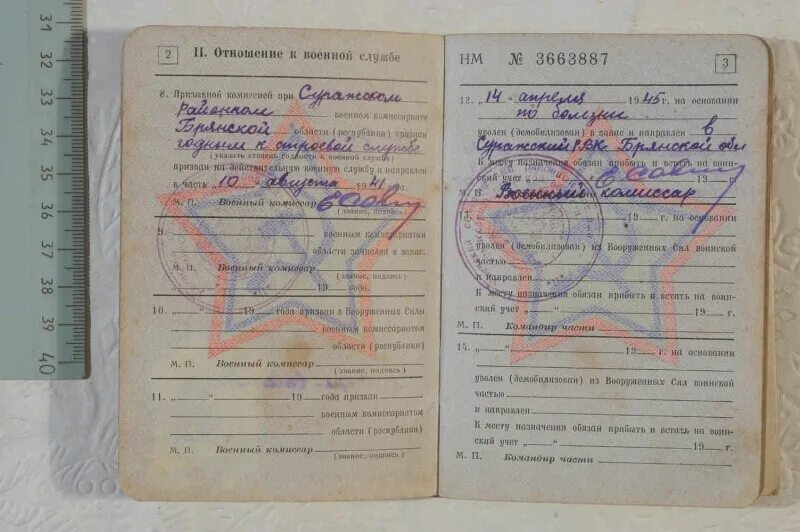 31
32
33
34
35
36
37
38
39
40
2
II. Отношение к военной службе
8. Призывной комиссией при Суражском
Районном военном комиссариате
Брянской области (республики) признан
годным к строевой службе
(указать степень годности к военной службе)
призван на действительную военную службу и направлен
в часть „10“ августа 1941 г.
М. П. Военный комиссар
(звание, подпись)
9.
военным комиссариатом
области зачислен в запас.
М. П. Военный комиссар
(звание, подпись)
„ “ 19 года.
10. „ “ 19 года призван в Вооруженные Силы
военным комиссариатом
области (республики)
М. П. Военный комиссар
(звание, подпись)
11. „ “ 19 года призван
военным комиссариатом
области (республики)
М. П. Военный комиссар
(звание, подпись)
НМ № 3663887
3
12. „14“ апреля 1945 г. на основании
по болезни
уволен (демобилизован) в запас и направлен в
Суражский РВК Брянской обл
К месту назначения обязан прибыть и встать на воин-
ский учет „ “ 19 г.
М. П. Военный комиссар
13. 19 г. на основании
уволен (демобилизован) из Вооруженных Сил воинской
частью
и направлен
К месту назначения обязан прибыть и встать на воин-
ский учет „ “ 19 г.
М. П. Командир части
14. „ “ 19 г. на основании
уволен (демобилизован) из Вооруженных Сил воинской
частью
и направлен
К месту назначения обязан прибыть и встать на воин-
ский учет „ “ 19 г.
М. П. Командир части